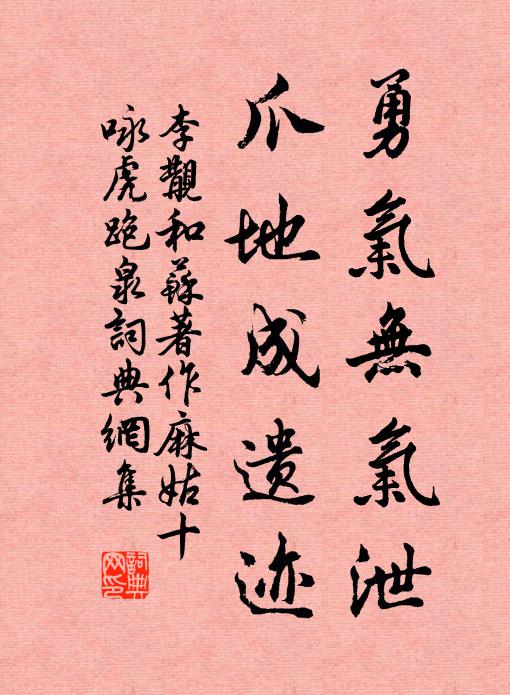 勇氣無氣泄
爪地成遗迹
李覯和蘇著作麻姑十
咏虎跑泉詞典網集
詞典網印